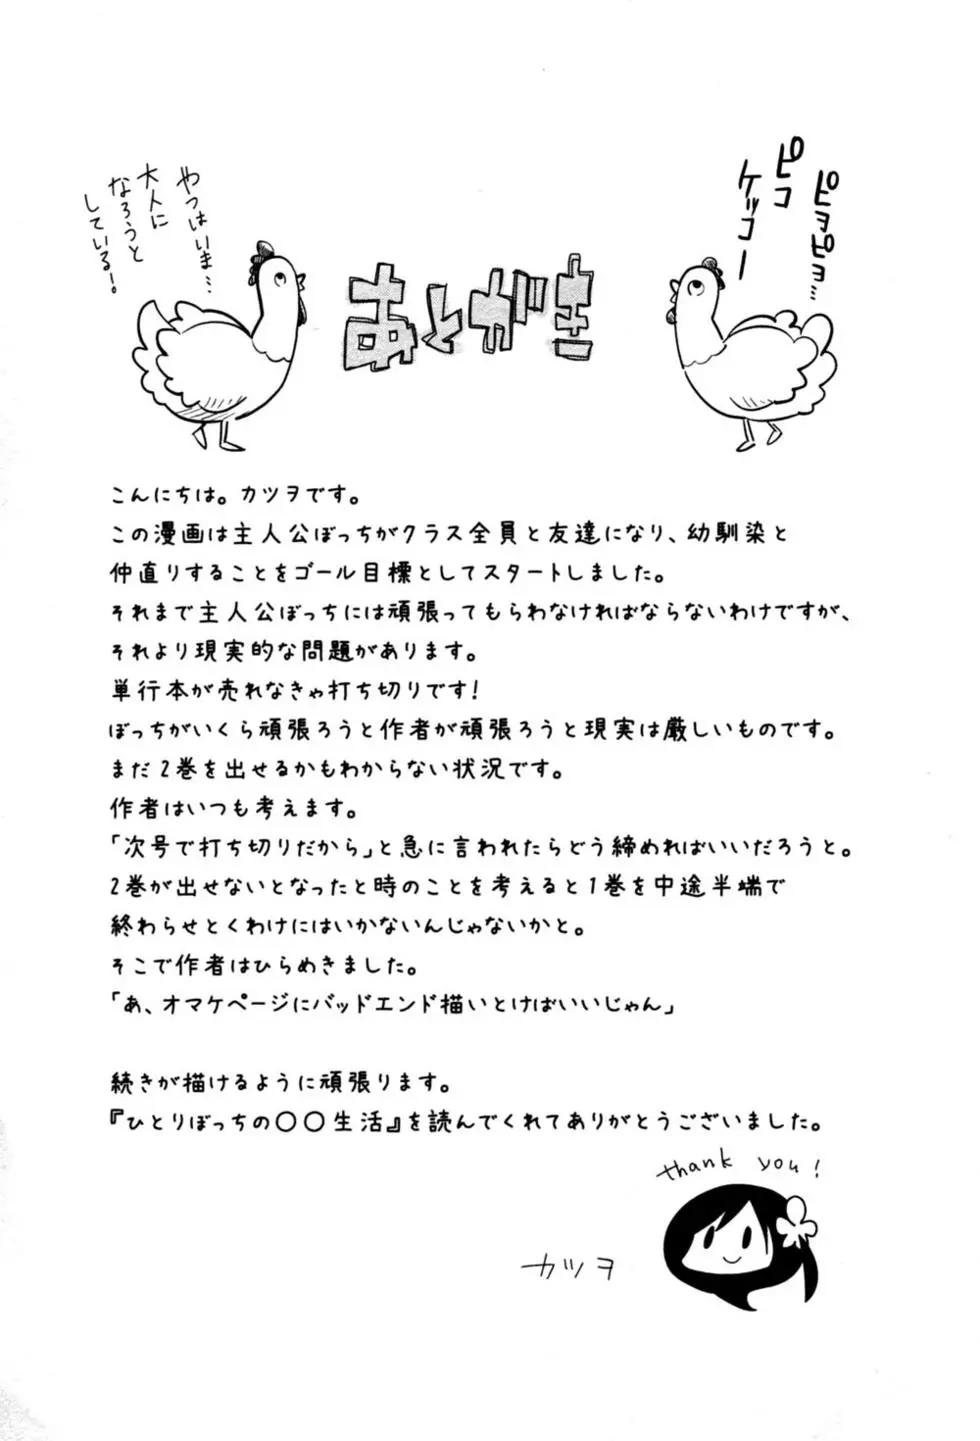 ピヨピヨ…
ピコ
ケッコー
あとがき
やつはいま…
大人に
なろうと
している!
こんにちは。カツヲです。
この漫画は主人公ぼっちがクラス全員と友達になり、幼馴染と
仲直りすることをゴール目標としてスタートしました。
それまで主人公ぼっちには頑張ってもらわなければならないわけですが、
それより現実的な問題があります。
単行本が売れなきゃ打ち切りです!
ぼっちがいくら頑張ろうと作者が頑張ろうと現実は厳しいものです。
まだ2巻を出せるかもわからない状況です。
作者はいつも考えます。
「次号で打ち切りだから」と急に言われたらどう締めればいいだろうと。
2巻が出せないとなったと時のことを考えると1巻を中途半端で
終わらせとくわけにはいかないんじゃないかと。
そこで作者はひらめきました。
「あ、オマケページにバッドエンド描いとけばいいじゃん」
続きが描けるように頑張ります。
『ひとりぼっちの〇〇生活』を読んでくれてありがとうございました。
thank you!
カツヲ